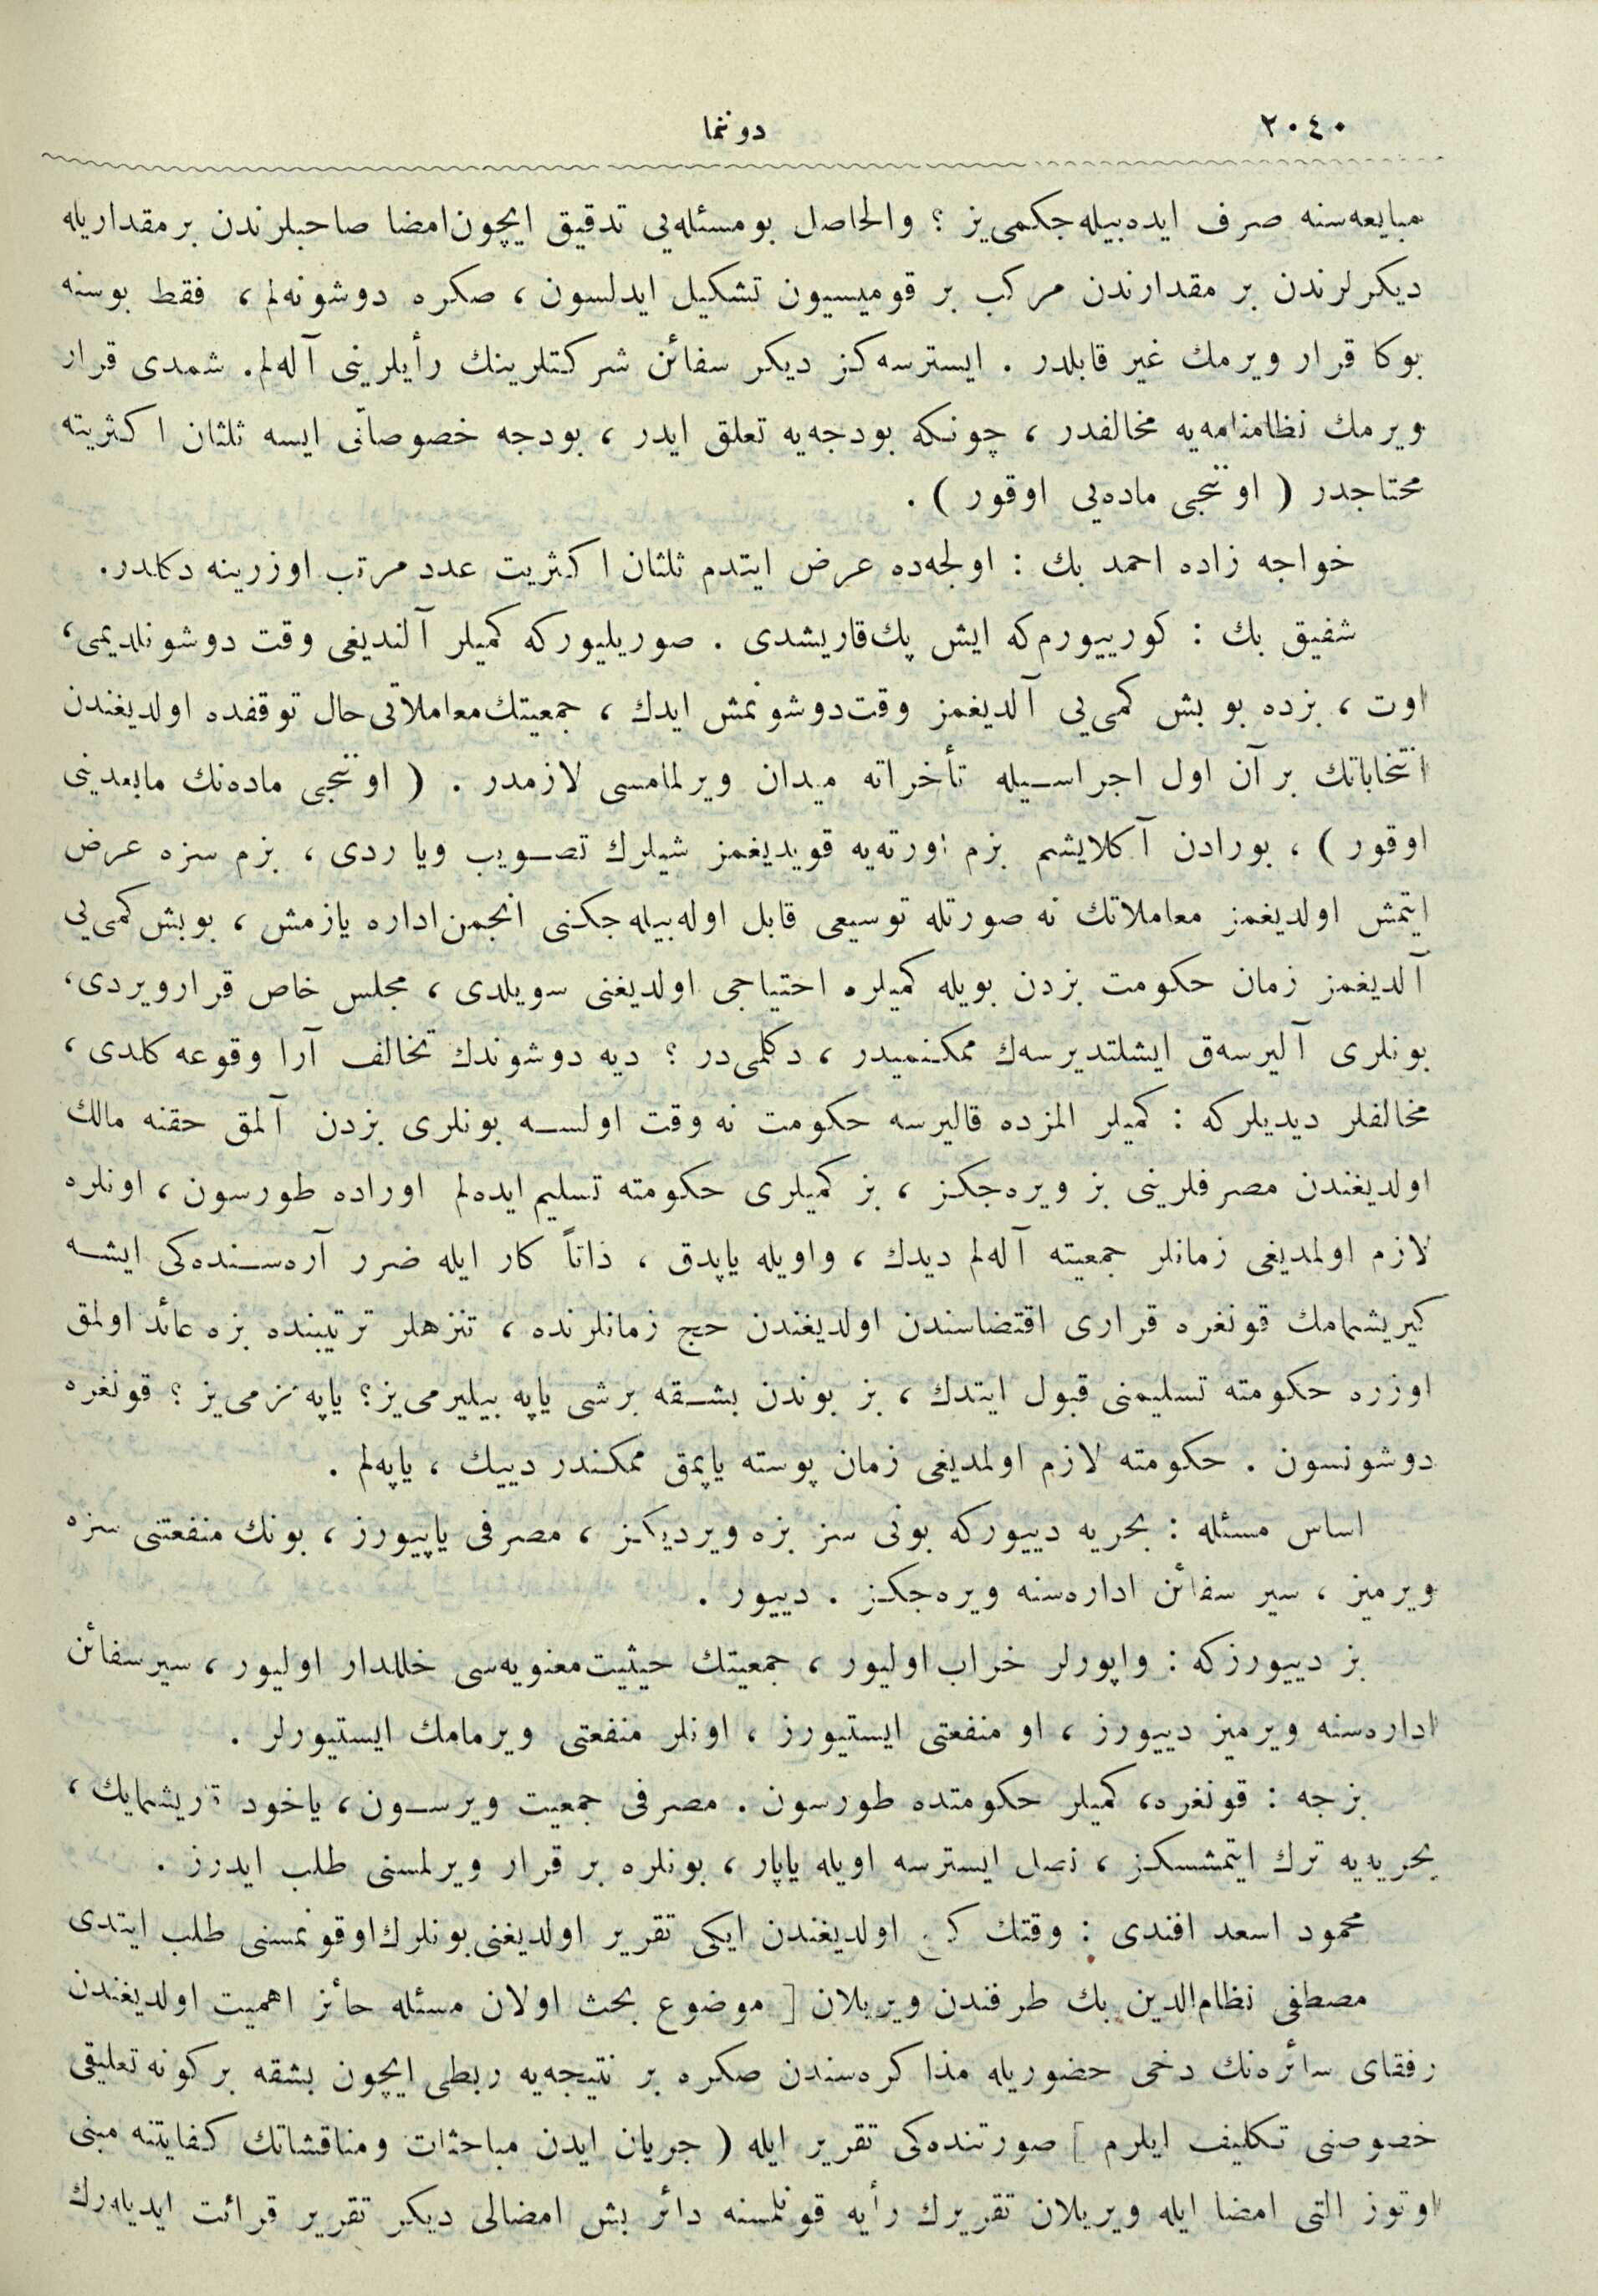 ٢٠٤٠
دوننما
مبايعه‌سنه صرف ايده‌بيله‌جكمى‌يز ؟ والحاصل بومسئله‌يى تدقيق ايچون امضا صاحبلرندن بر مقداريله
ديكرلرندن بر مقدارندن مركب بر قوميسيون تشكيل ايدلسون ، صكره دوشونه‌لم ، فقط بوسنه
بوكا قرار ويرمك غير قابلدر . ايسترسه‌كز ديكر سفائن شركتلرينك رأيلرينى آله‌لم. شمدى قرار
ويرمك نظامنامه‌يه مخالفدر ، چونكه بودجه‌يه تعلق ايدر ، بودجه خصوصاتى ايسه ثلثان اكثريته
محتاجدر ( اوننجى ماده‌يى اوقور ) .
خواجه زاده احمد بك : اولجه‌ده عرض ايتدم ثلثان اكثريت عدد مرتب اوزرينه دكلدر.
شفيق بك : كورييورم‌كه ايش پك قاريشدى . صوريليوركه كميلر آلنديغى وقت دوشونلديمى،
اوت ، بزده بو بش كمى‌يى آلديغمز وقت دوشونمش ايدك ، جمعيتك معاملاتى حال توقفده اولديغندن
انتخاباتك بر آن اول اجراسيله تأخراته ميدان ويرلمامسى لازمدر . ( اوننجى ماده‌نك مابعدينى
اوقور ) ، بورادن آكلايشم بزم اورته‌يه قويديغمز شيلرك تصويب ويا ردى ، بزم سزه عرض
ايتمش اولديغمز معاملاتك نه صورتله توسيعى قابل اوله‌بيله‌جكنى انجمن اداره يازمش ، بوبش كمى‌يى
آلديغمز زمان حكومت بزدن بويله كميلره احتياجى اولديغنى سويلدى ، مجلس خاص قرارويردى،
بونلرى آليرسه‌ق ايشلتديرسه‌ك ممكنميدر ، دكلمى‌در ؟ ديه دوشوندك تخالف آرا وقوعه كلدى ،
مخالفلر ديديلركه : كميلر المزده قاليرسه حكومت نه وقت اولسه بونلرى بزدن آلمق حقنه مالك
اولديغندن مصرفلرينى بز ويره‌جكز ، بز كميلرى حكومته تسليم ايده‌لم اوراده طورسون ، اونلره
لازم اولمديغى زمانلر جمعيته آله‌لم ديدك ، واويله ياپدق ، ذاتاً كار ايله ضرر آره‌سنده‌كى ايشه
كيريشمامك قونغره قرارى اقتضاسندن اولديغندن حج زمانلرنده ، تنزهلر ترتيبنده بزه عائد اولمق
اوزره حكومته تسليمنى قبول ايتدك ، بز بوندن بشقه برشى ياپه بيليرمى‌يز؟ ياپه‌مزمى‌يز ؟ قونغره
دوشونسون . حكومته لازم اولمديغى زمان پوسته ياپمق ممكندر دييك ، ياپه‌لم .
اساس مسئله : بحريه دييوركه بونى سز بزه ويرديكز ، مصرفى ياپييورز ، بونك منفعتنى سزه
ويرميز ، سير سفائن اداره‌سنه ويره‌جكز . دييور .
بز دييورزكه : واپورلر خراب اوليور ، جمعيتك حيثيت معنويه‌سى خللدار اوليور ، سيرسفائن
اداره‌سنه ويرميز دييورز ، او منفعتى ايستيورز ، اونلر منفعتى ويرمامك ايستيورلر .
بزجه : قونغره، كميلر حكومتده طورسون . مصرفى جمعيت ويرسون، ياخود قاريشمايك ،
بحريه‌يه ترك ايتمشسكز ، نصل ايسترسه اويله ياپار ، بونلره بر قرار ويرلمسنى طلب ايدرز .
محمود اسعد افندى : وقتك اولديغندن ايكى تقرير اولديغنى بونلرك اوقونمسنى طلب ايتدى
مصطفى نظام‌الدين بك طرفندن ويريلان [ موضوع بحث اولان مسئله حائز اهميت اولديغندن
رفقاى سائره‌نك دخى حضوريله مذاكره‌سندن صكره بر نتيجه‌يه ربطى ايچون بشقه بركونه تعليقى
خصوصنى تكليف ايلرم ] صورتنده‌كى تقرير ايله ( جريان ايدن مباحثات ومناقشاتك كفايتنه مبنى
اوتوز التى امضا ايله ويريلان تقريرك رأيه قونلمسنه دائر بش امضالى ديكر تقرير قرائت ايديله‌رك